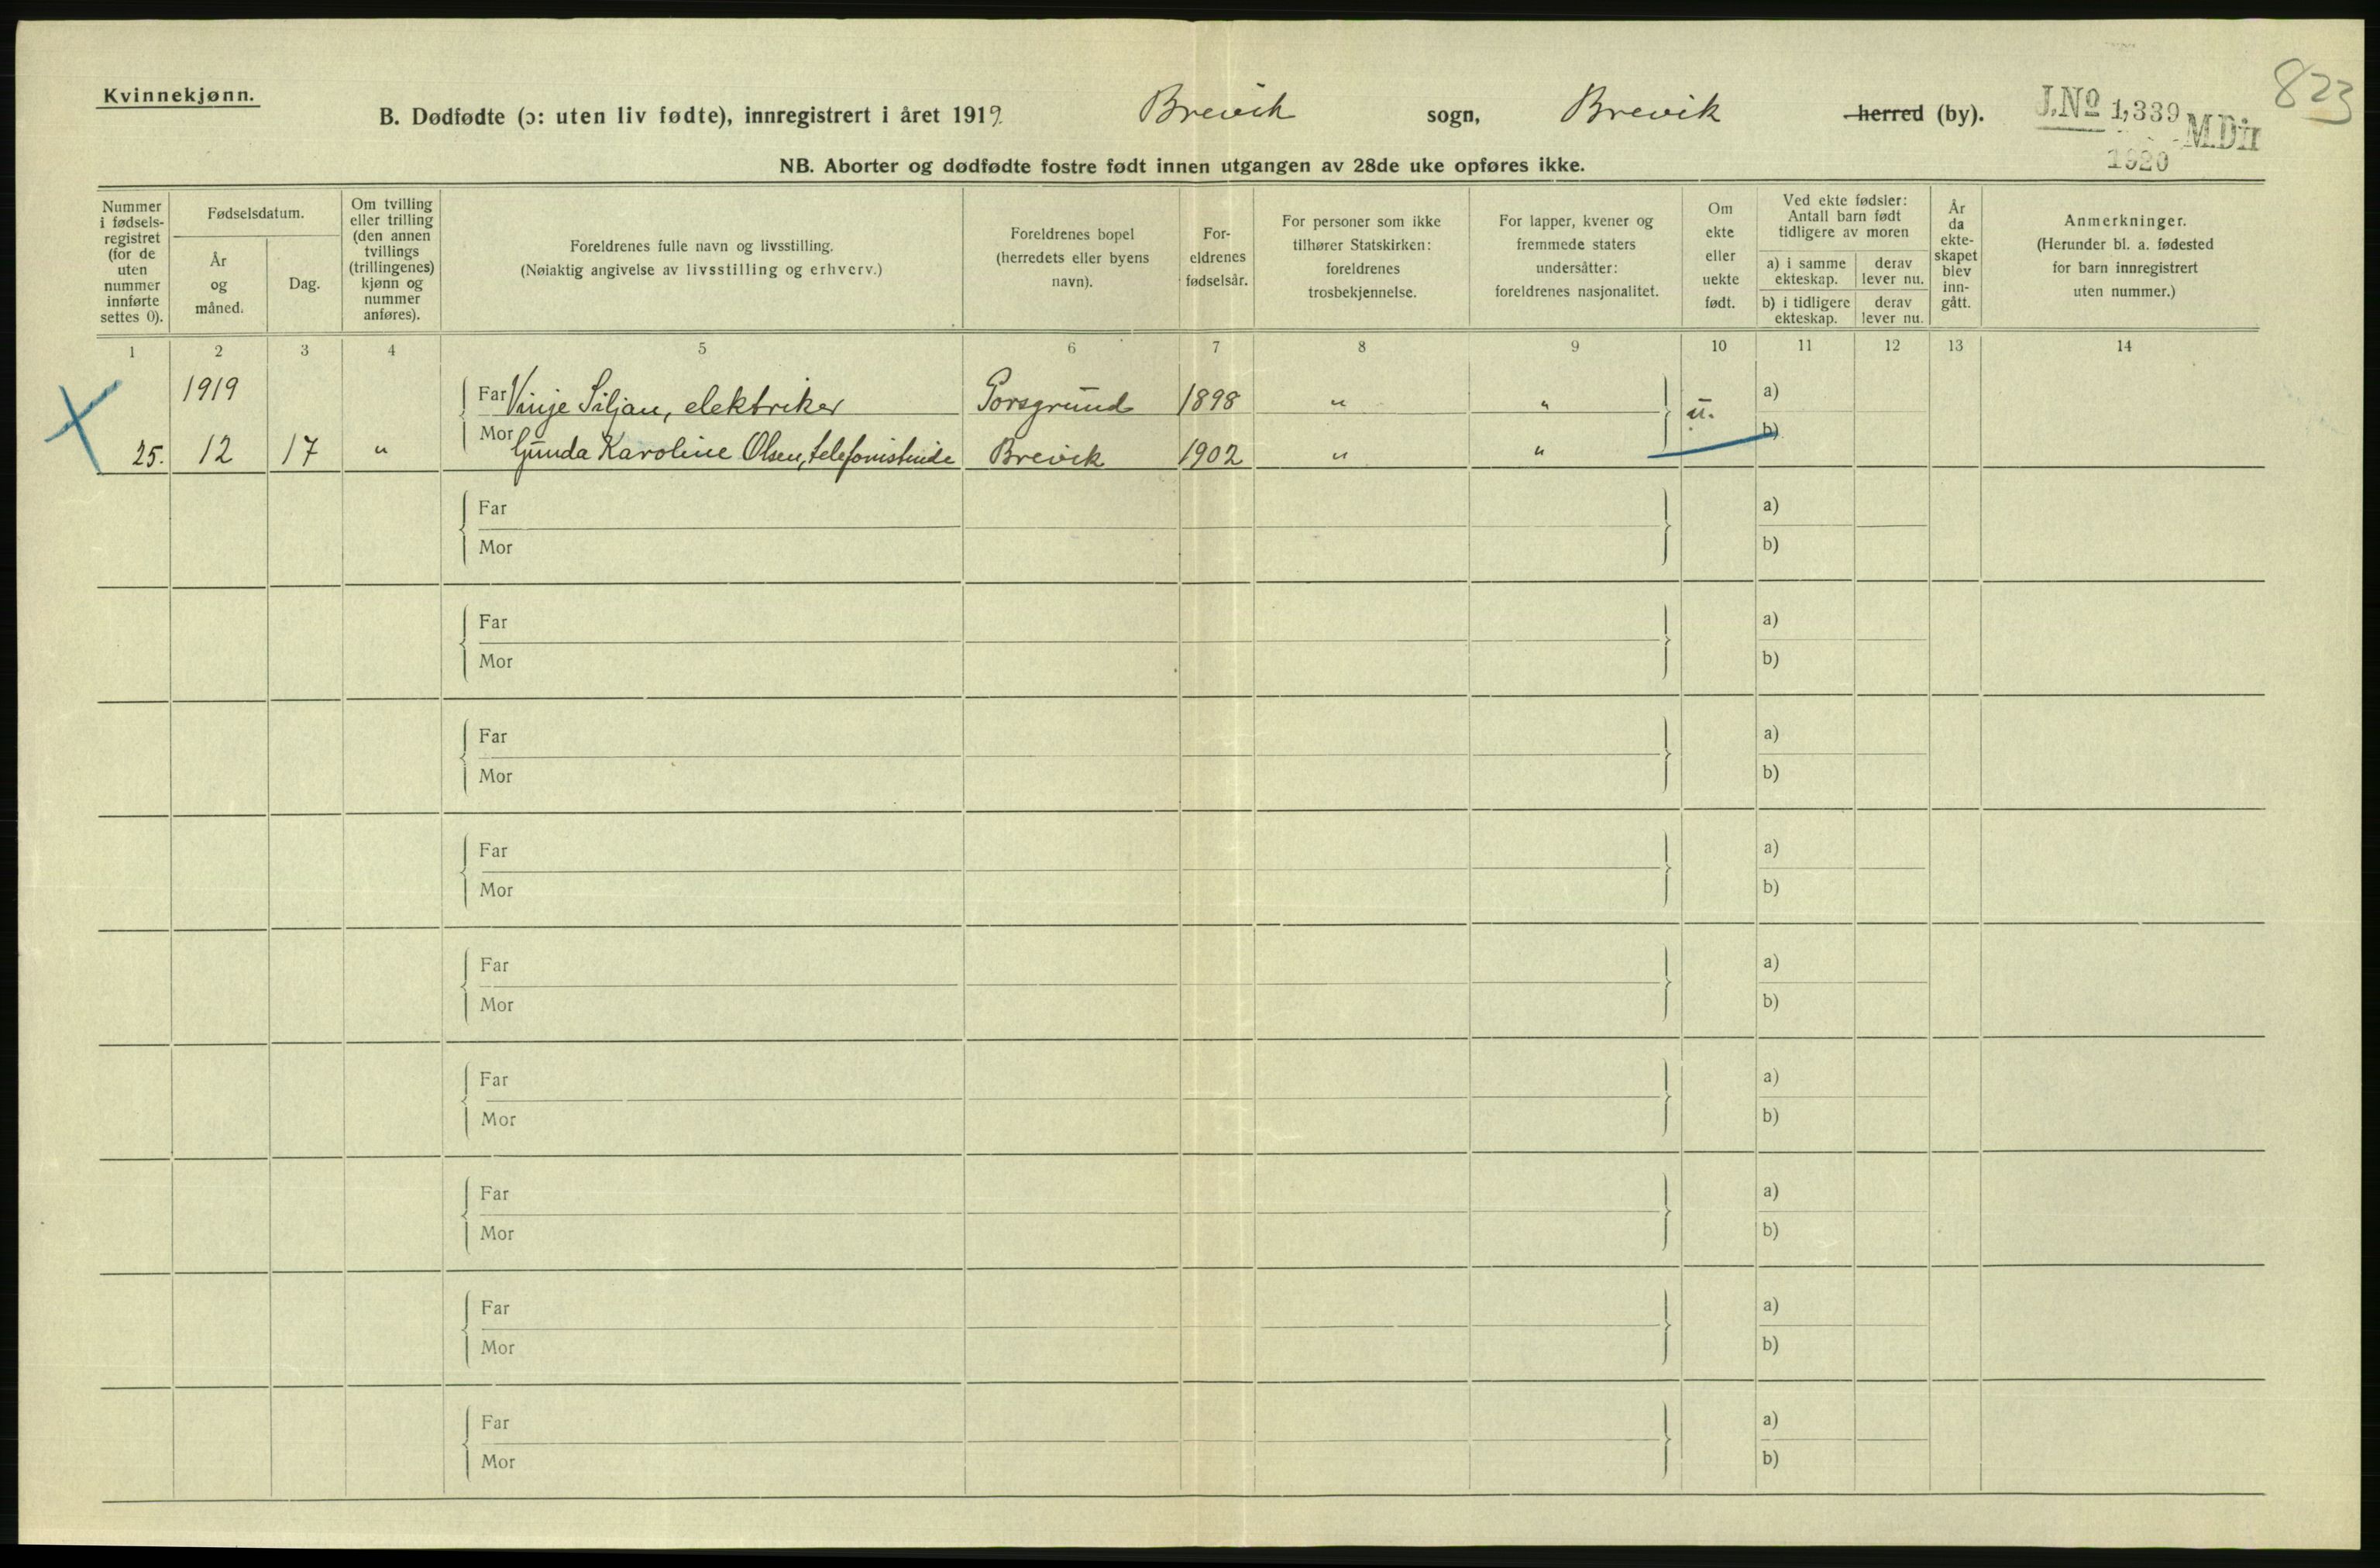 Kvinnekjønn.
B. Dødfødte (ɔ: uten liv fødte), innregistrert i året 1919. Brevik sogn, Brevik herred (by).
J.No 1,339 M.DII
1920
823
NB. Aborter og dødfødte fostre født innen utgangen av 28de uke opføres ikke.
Nummer i fødsels-registret (for de uten nummer innførte settes 0).
Fødselsdatum.
År og måned.
Dag.
Om tvilling eller trilling (den annen tvillings (trillingenes) kjønn og nummer anføres).
Foreldrenes fulle navn og livsstilling.
(Nøiaktig angivelse av livsstilling og erhverv.)
Foreldrenes bopel (herredets eller byens navn).
For-eldrenes fødselsår.
For personer som ikke tilhører Statskirken: foreldrenes trosbekjennelse.
For lapper, kvener og fremmede staters undersåtter: foreldrenes nasjonalitet.
Om ekte eller uekte født.
Ved ekte fødsler: Antall barn født tidligere av moren
a) i samme ekteskap.
derav lever nu.
b) i tidligere ekteskap.
derav lever nu.
År da ekte-skapet blev inn-gått.
Anmerkninger.
(Herunder bl. a. fødested for barn innregistrert uten nummer.)
1 2 3 4 5 6 7 8 9 10 11 12 13 14
1919 Far Vinje Siljan, elektriker Porsgrund 1898 " " u. a)
25. 12 17 " Mor Gunda Karoline Olsen, telefonistinde Brevik 1902 " " b)
Far a)
Mor b)
Far a)
Mor b)
Far a)
Mor b)
Far a)
Mor b)
Far a)
Mor b)
Far a)
Mor b)
Far a)
Mor b)
Far a)
Mor b)
Far a)
Mor b)